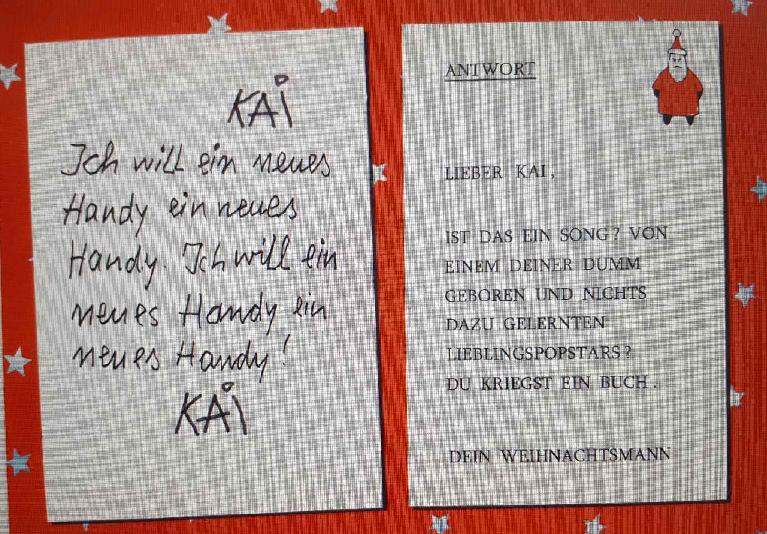 KAI
Ich will ein neues
Handy ein neues
Handy. Ich will ein
neues Handy ein
neues Handy!
KAI
ANTWORT
LIEBER KAI,
IST DAS EIN SONG? VON
EINEM DEINER DUMM
GEBOREN UND NICHTS
DAZU GELERNTEN
LIEBLINGSPOPSTARS?
DU KRIEGST EIN BUCH.
DEIN WEIHNACHTSMANN